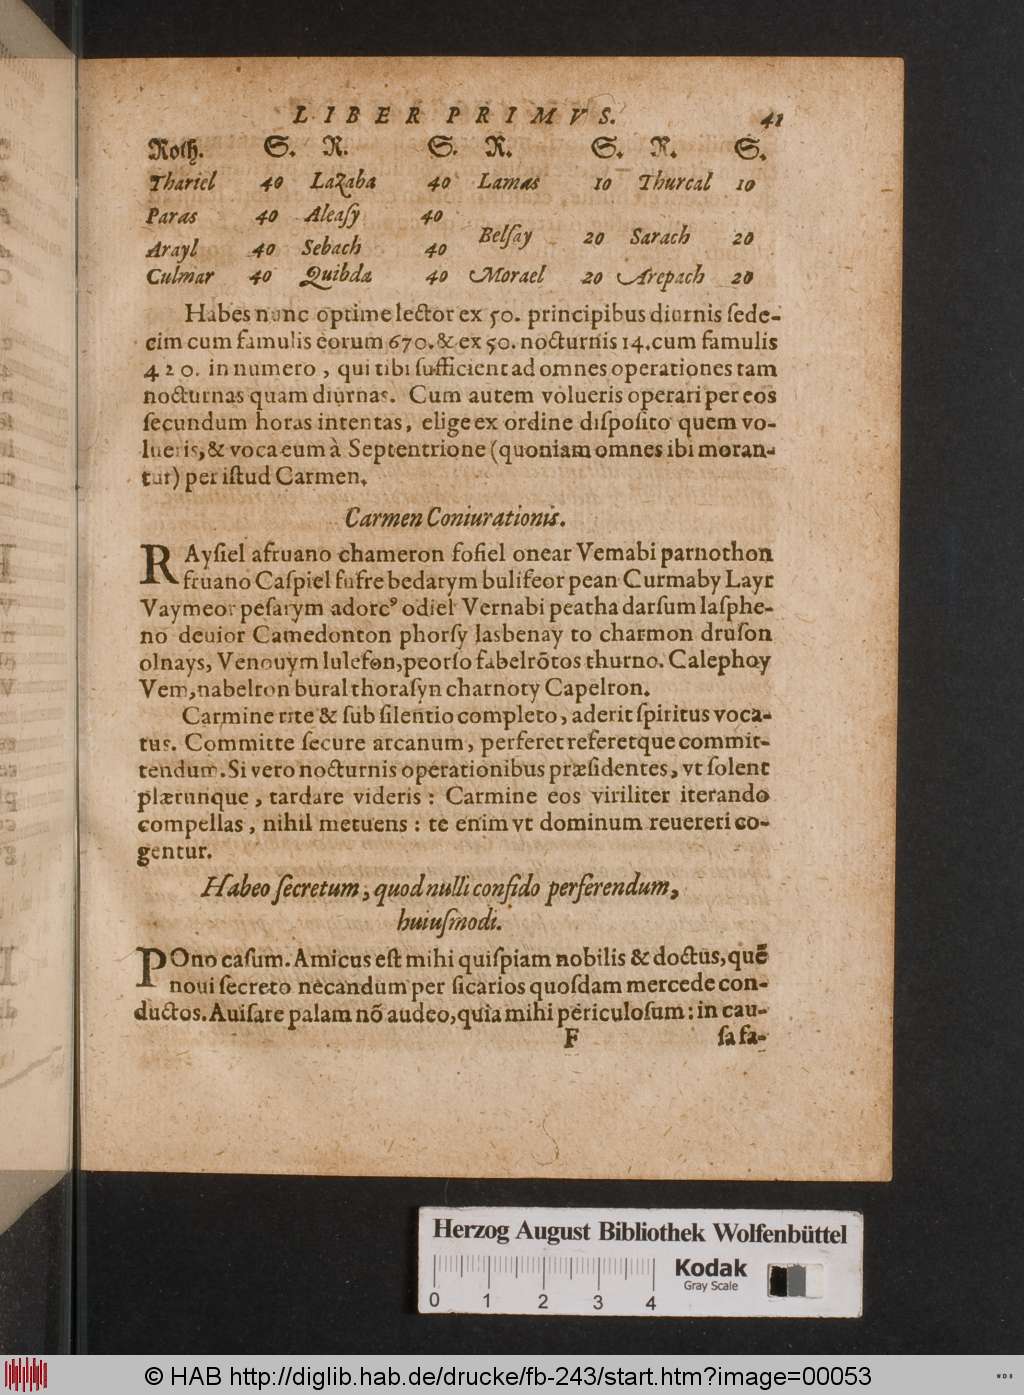 LIBER PRIMVS. 41
Roth. S. R. S. R. S. R. S.
Thariel 40 Lazaba 40 Lamas 10 Thurcal 10
Paras 40 Aleasy 40
Belsay 20 Sarach 20
Arayl 40 Sebach 40
Culmar 40 Quibda 40 Morael 20 Arepach 20
Habes nunc optime lector ex 50. principibus diurnis ſede-
cim cum famulis eorum 670. & ex 50. nocturnis 14. cum famulis
420. in numero, qui tibi ſufficient ad omnes operationes tam
nocturnas quam diurnas. Cum autem volueris operari per eos
ſecundum horas intentas, elige ex ordine diſpoſito quem vo-
lueris, & voca eum à Septentrione (quoniam omnes ibi moran-
tur) per iſtud Carmen.
Carmen Coniurationis.
RAyſiel afruano chameron fofiel onear Vemabi parnothon
fruano Caſpiel fufre bedarym bulifeor pean Curmaby Layr
Vaymeor peſarym adorcꝰ odiel Vernabi peatha darſum laſphe-
no deuior Camedonton phorſy lasbenay to charmon druſon
olnays, Venouym lulefon, peorſo fabelrõtos thurno. Calephoy
Vem, nabelron bural thoraſyn charnoty Capelron.
Carmine rite & ſub ſilentio completo, aderit ſpiritus voca-
tus. Committe ſecure arcanum, perferet referetque commit-
tendum. Si vero nocturnis operationibus præſidentes, vt ſolent
plærunque, tardare videris: Carmine eos viriliter iterando
compellas, nihil metuens: te enim vt dominum reuereri co-
gentur.
Habeo ſecretum, quod nulli confido perferendum,
huiuſmodi.
POno caſum. Amicus eſt mihi quiſpiam nobilis & doctus, quẽ
noui ſecreto necandum per ſicarios quoſdam mercede con-
ductos. Auiſare palam nõ audeo, quia mihi periculoſum: in cau-
F ſa fa-
Herzog August Bibliothek Wolfenbüttel
Kodak
Gray Scale
0 1 2 3 4
© HAB http://diglib.hab.de/drucke/fb-243/start.htm?image=00053